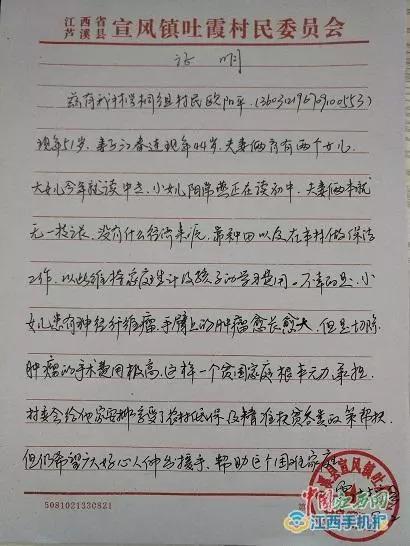 江西省
芦溪县 宣风镇吐霞村民委员会
证明
兹有我村学祠组村民欧阳平(360312196709100553)
现年51岁，妻子江春连现年44岁，夫妻俩育有两个女儿
大女儿今年就读中专，小女儿阳燕正在读初中，夫妻俩本就
无一技之长，没有什么经济来源，靠种田以及在本村做保洁
工作，以此维持家庭生计及孩子的学习费用。不幸的是，小
女儿患有神经纤维瘤，手臂上的肿瘤愈长愈大，但是切除
肿瘤的手术费用极高，这样一个贫困家庭根本无力承担。
村委会给他家安排享受了农村低保及精准扶贫各类政策帮扶
但仍希望广大好心人伸出援手，帮助这个困难家庭
5081021330821
中国江西网
江西手机报